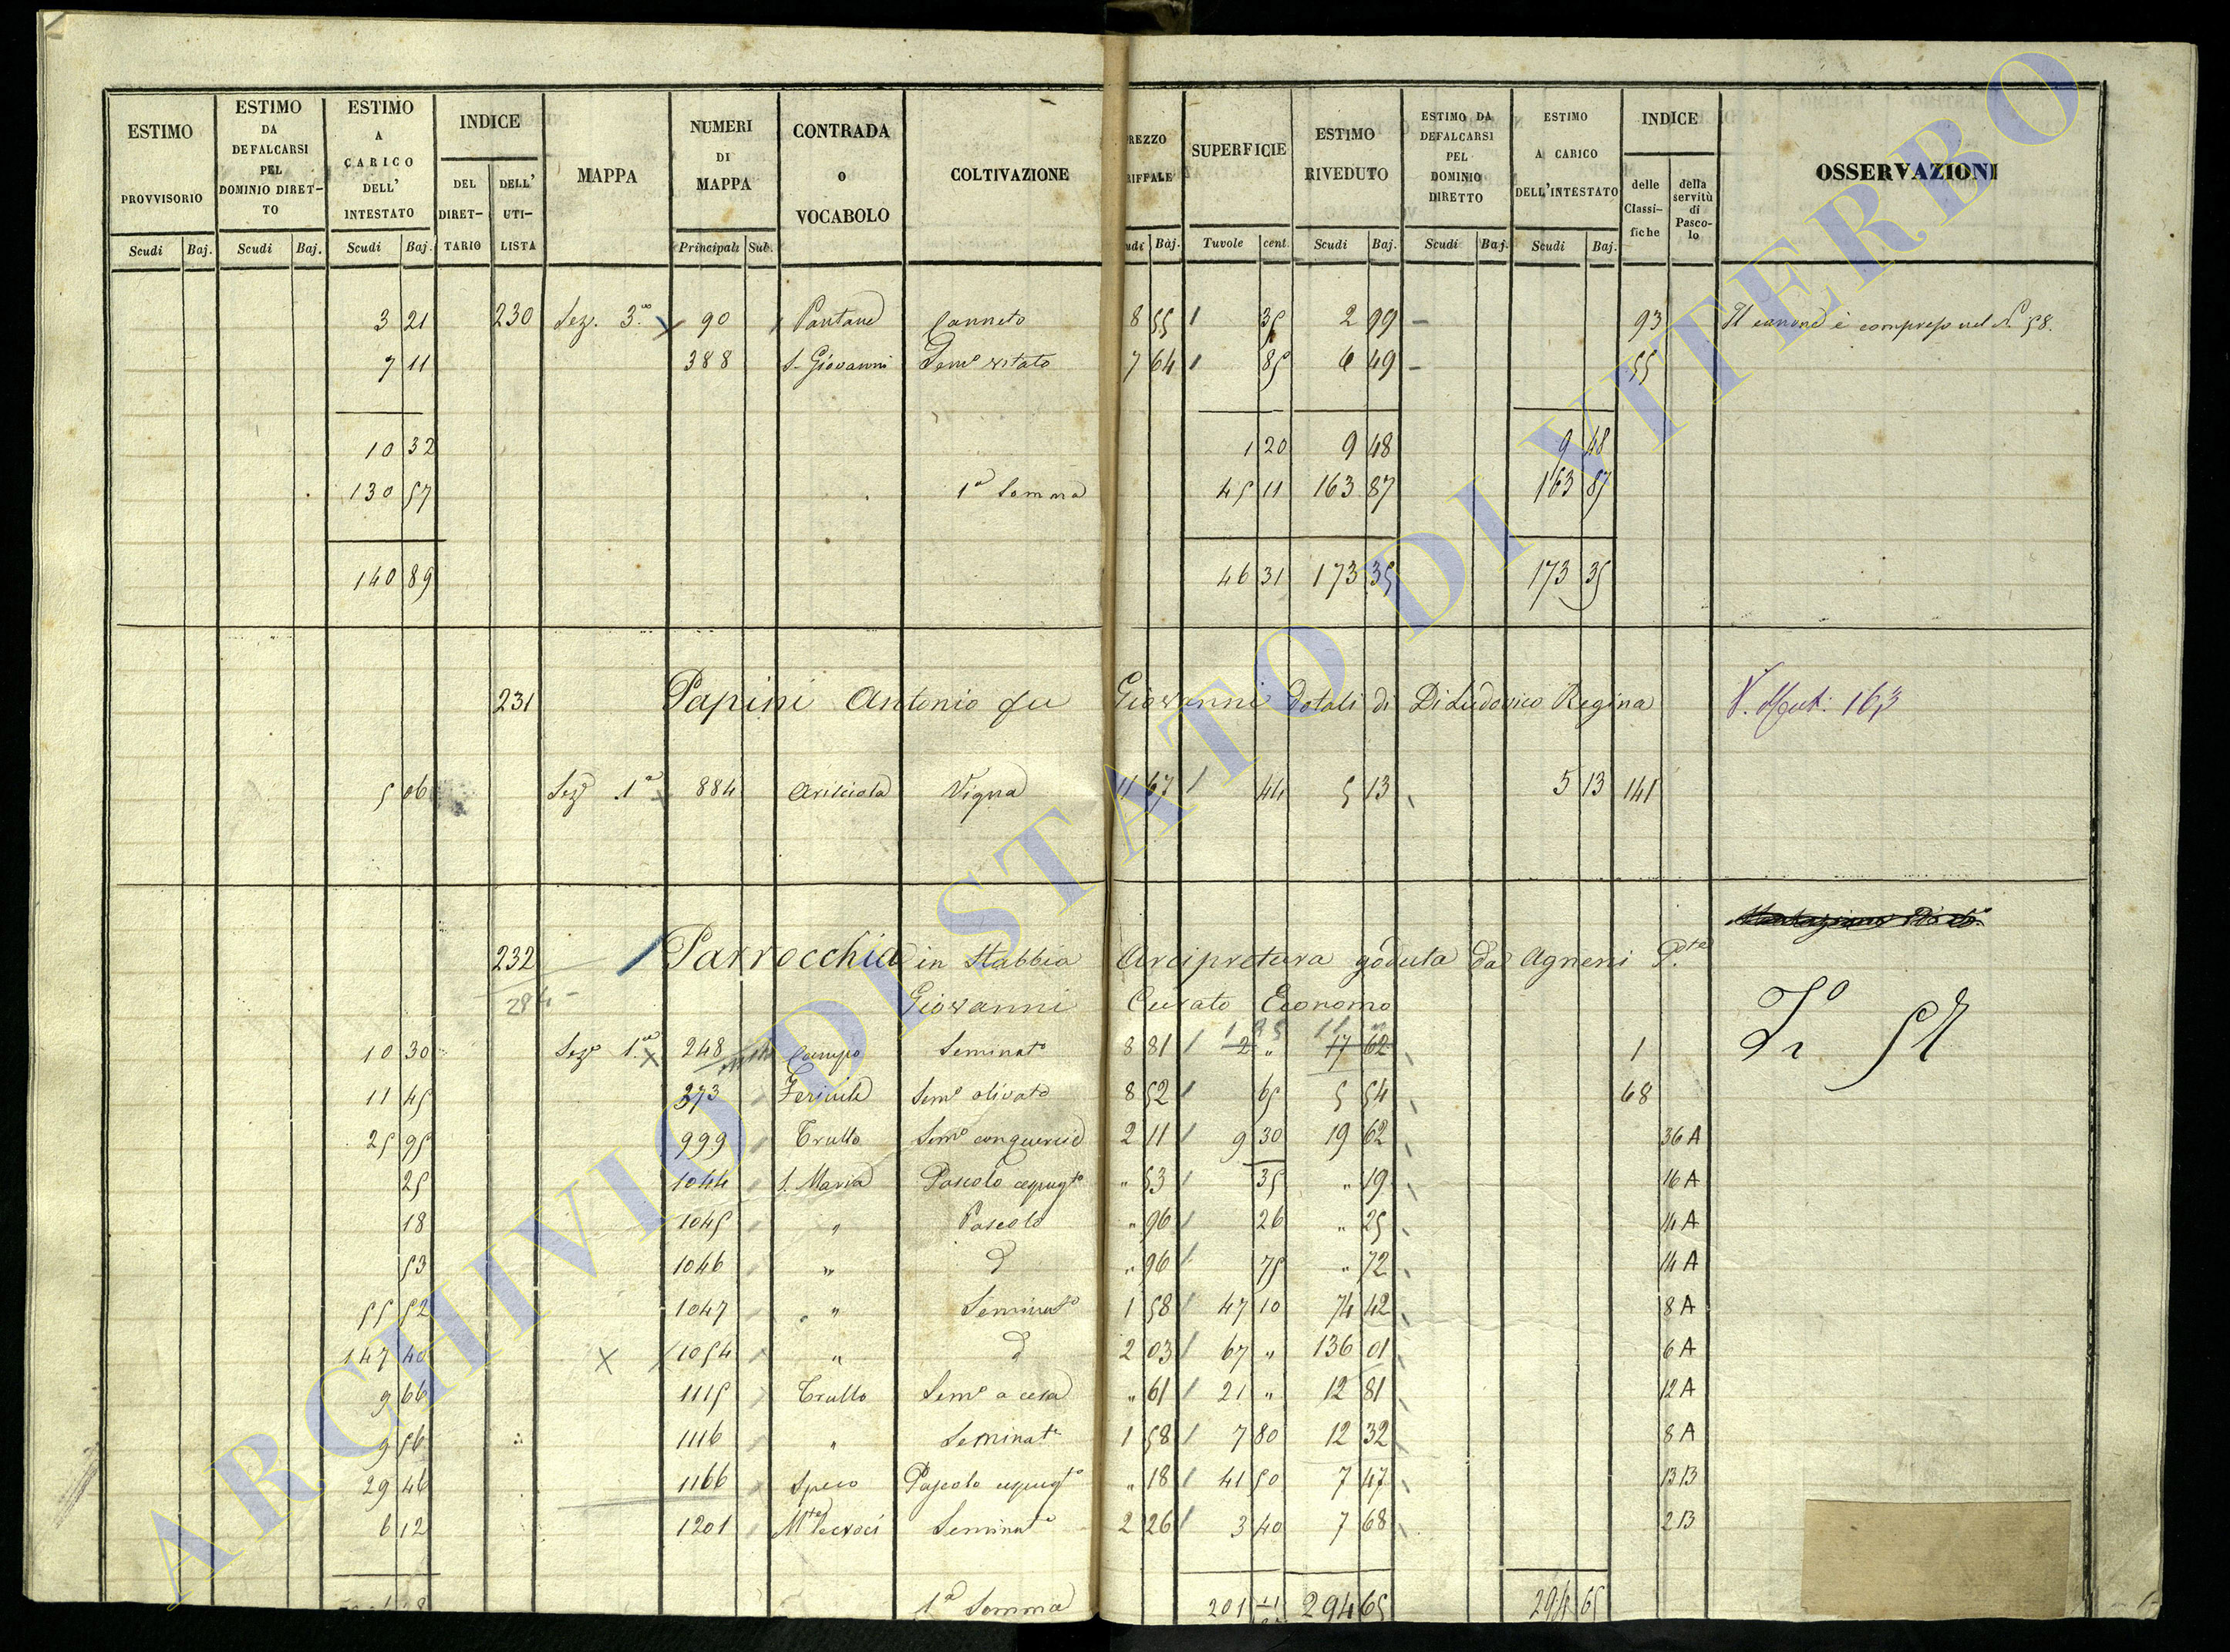 ESTIMO PROVVISORIO | ESTIMO DA DEFALCARSI PEL DOMINIO DIRETTO | ESTIMO A CARICO DELL' INTESTATO | INDICE | MAPPA | NUMERI DI MAPPA | CONTRADA o VOCABOLO | COLTIVAZIONE | REZZO RIFFALE | SUPERFICIE | ESTIMO RIVEDUTO | ESTIMO DA DEFALCARSI PEL DOMINIO DIRETTO | ESTIMO A CARICO DELL'INTESTATO | INDICE | OSSERVAZIONI
DEL DIRETTARIO | DELL' UTILISTA | delle Classifiche | della servitù di Pascolo
Scudi | Baj. | Scudi | Baj. | Scudi | Baj. | Principali | Sub. | udi | Baj. | Tavole | cent. | Scudi | Baj. | Scudi | Baj. | Scudi | Baj.
3 21 | 230 | Sez. 3.a | 90 | Pantane | Canneto | 8 55 | 35 | 2 99 | 93 | Il canone è compreso nel N. 58.
7 11 | 388 | S. Giovanni | Sem.o vitato | 7 64 | 85 | 6 49 | 55
10 32 | 1 20 | 9 48 | 9 48
130 57 | 1.a Somma | 45 11 | 163 87 | 163 87
140 89 | 46 31 | 173 35 | 173 35
231 | Papini Antonio fu Giovanni dotali di Di Ludovico Regina | V. 163
5 06 | Sez. 1.a | 884 | Ariciola | Vigna | 11 67 | 44 | 5 13 | 5 13 | 141
232 | Parrocchia in Stabbia Arcipretura goduta da Agneni P.te
284 | Giovanni Curato Economo
10 30 | Sez. 1.a | 248 | Campo | Seminat.o | 8 81 | 2 " | 17 62 | 1
11 45 | 273 | Sem.o olivato | 8 52 | 65 | 5 54 | 68
25 95 | 999 | Trullo | Sem.o con querce | 2 11 | 9 30 | 19 62 | 36 A
25 | 1044 | S. Maria | Pascolo cespug.to | " 53 | 35 | " 19 | 16 A
18 | 1045 | " | Pascolo | " 96 | 26 | " 25 | 14 A
53 | 1046 | " | d | " 96 | 75 | " 72 | 14 A
55 52 | 1047 | " | Seminat.o | 1 58 | 47 10 | 74 42 | 8 A
147 40 | 1054 | " | d | 2 03 | 67 " | 136 01 | 6 A
9 66 | 1115 | Trullo | Sem.o a cesa | " 61 | 21 " | 12 81 | 12 A
9 56 | 1116 | " | Seminat.o | 1 58 | 7 80 | 12 32 | 8 A
29 46 | 1166 | Speco | Pascolo cespug.to | " 18 | 41 50 | 7 47 | 13 B
6 12 | 1201 | M.te | Seminat.o | 2 26 | 3 40 | 7 68 | 2 B
1.a Somma | 201 | 294 65 | 294 65
ARCHIVIO DI STATO DI VITERBO